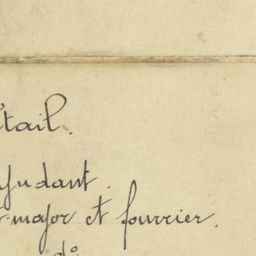 étail.
djudant.
t-major et fourrier.
do